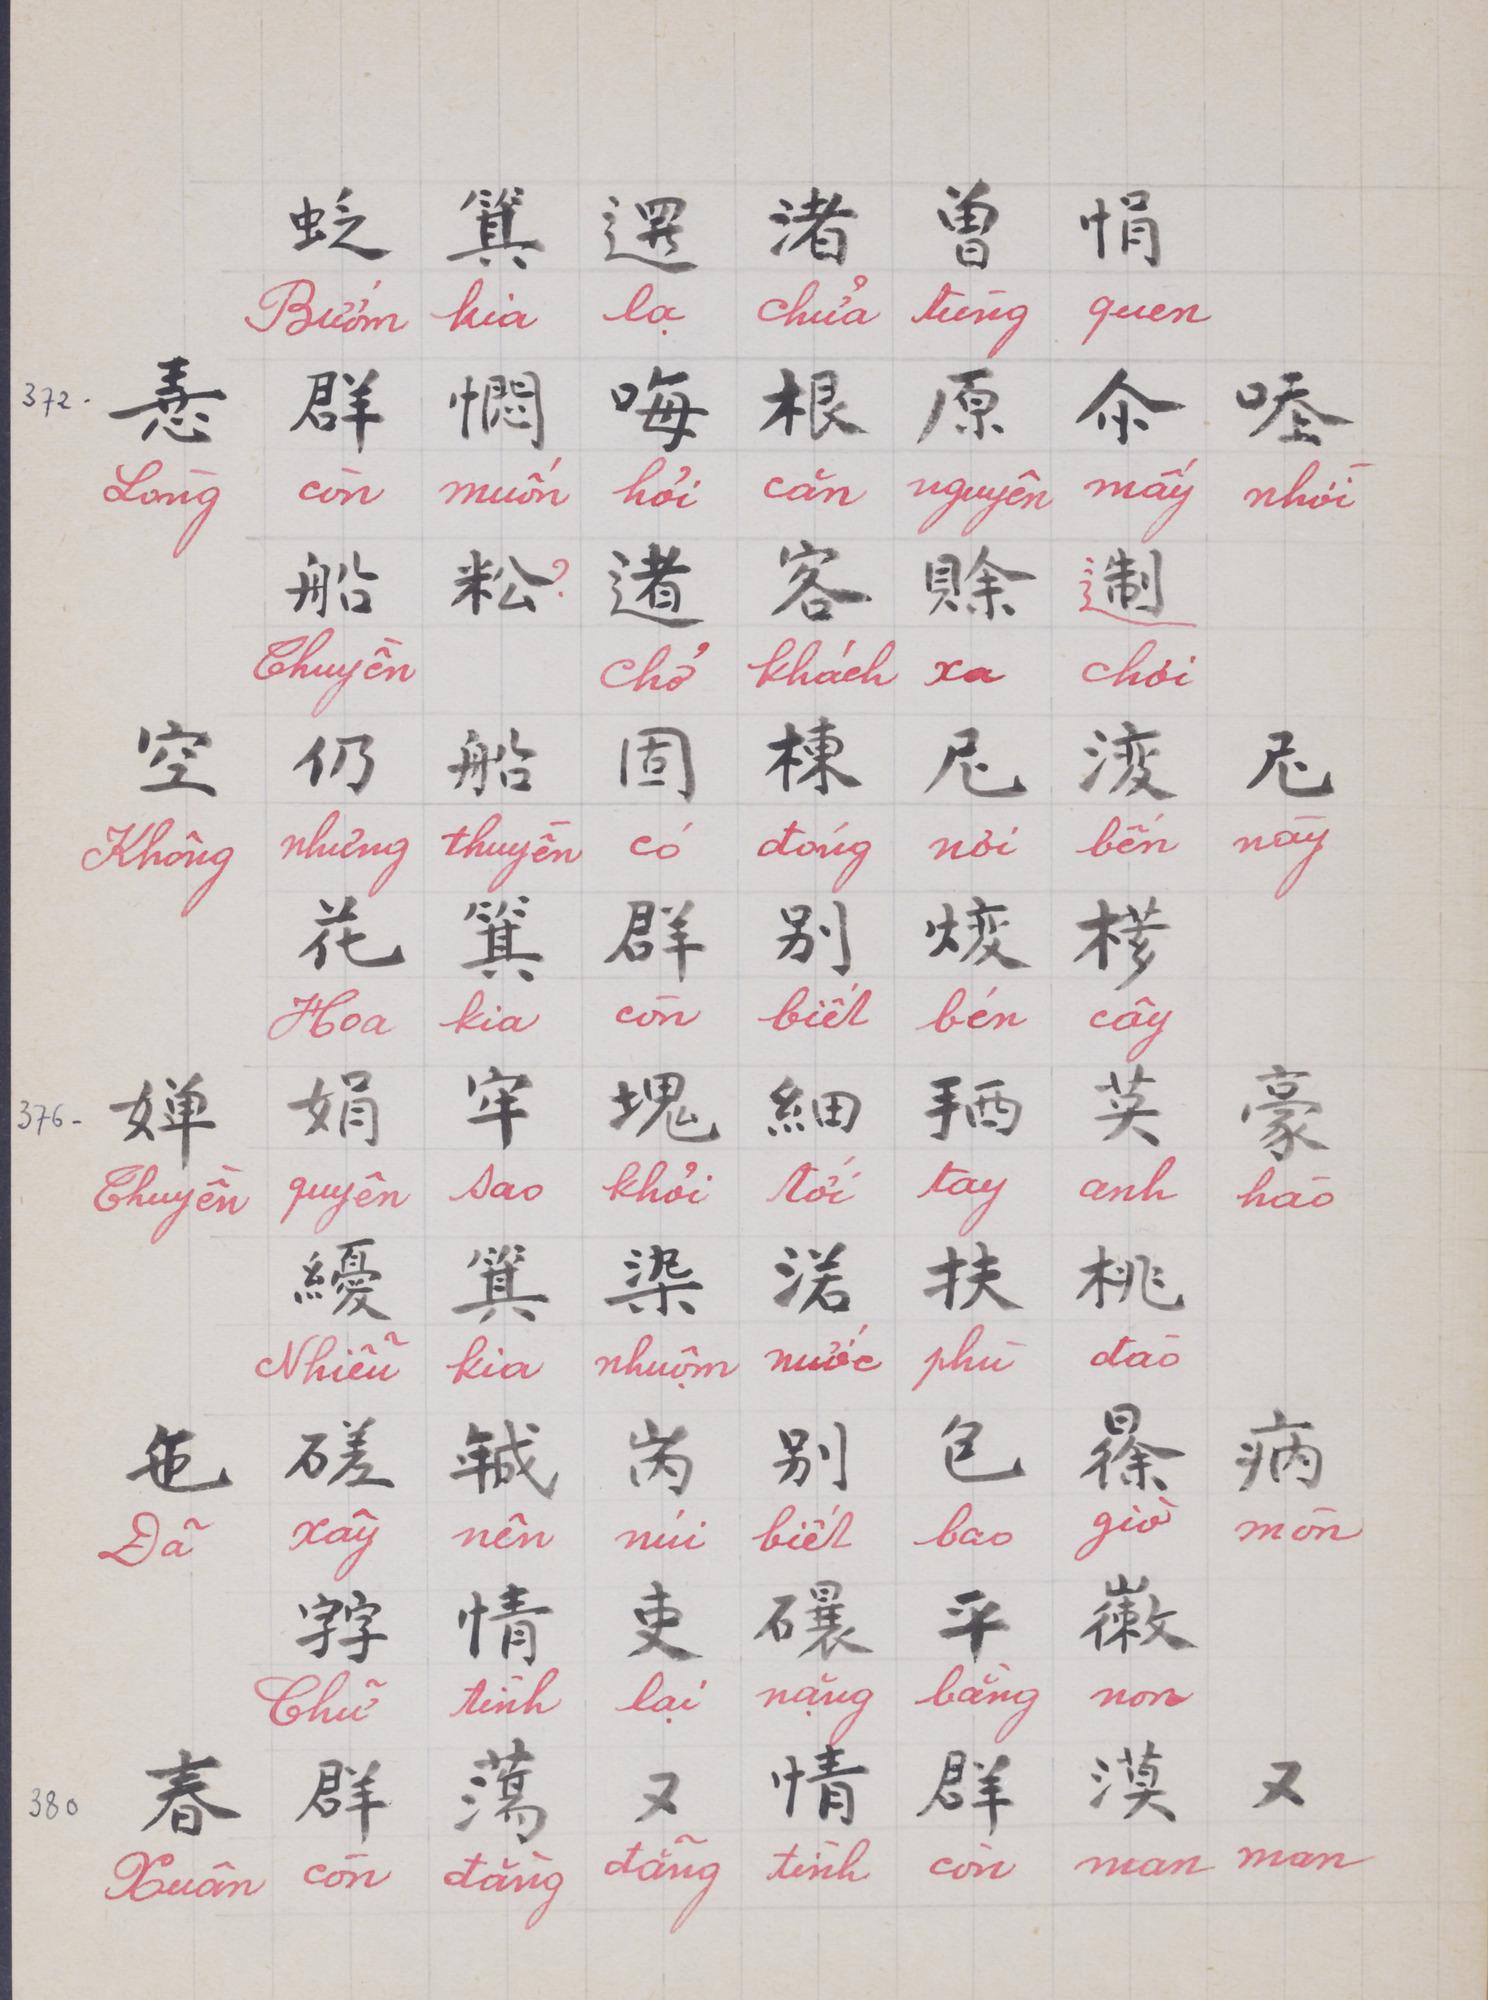 𧊉箕邏渚曾悁
Bướm kia lạ chửa từng quen
372. 𢚸群悶𠳨根原尒𠰃
Lòng còn muốn hỏi căn nguyên mấy nhời
船粉?遮客賖𨔈
Thuyền chở khách xa chơi
空仍船固棟尼渡尼
Không những thuyền có đóng nơi bến này
花箕群别㷪𣘃
Hoa kia còn biết bén cây
376- 嬋娟牢塊細𢬣英豪
Thuyền quyên sao khỏi tới tay anh hào
繞箕染渃扶桃
Nhiễu kia nhuộm nước phù đào
㐌磋𢧚𡶀别包𣇞𤷱
Đã xây nên núi biết bao giờ mòn
𡦂情吏𥗾平𡽫
Chữ tình lại nặng bằng non
380 春群蕩又情群漠又
Xuân còn đằng đẵng tình còn man man